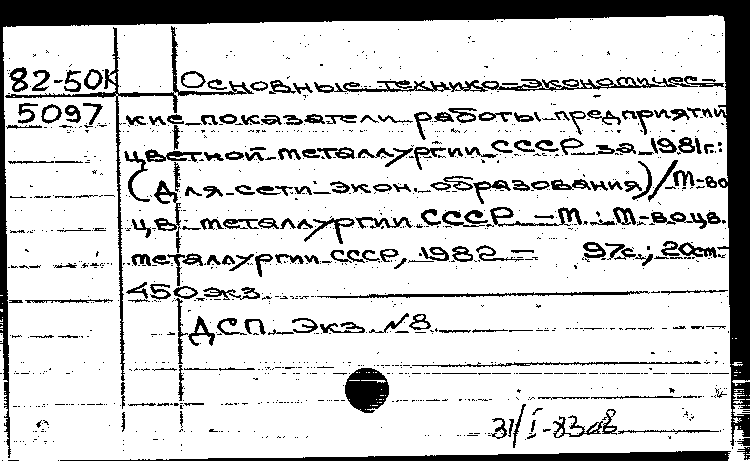 82-50К Основные технико-экономичес-
5097 кие показатели работы предприятий
цветной металлургии СССР за 1981г.:
(Для сети экон. образования)/М-во
цв. металлургии СССР. - М.: М-во цв.
металлургии СССР, 1982 - 97с.; 20см-
450 экз.
ДСП. Экз. №8
31/I-83